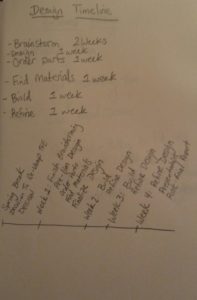 Design Timeline
- Brainstorm 2 Weeks
- Design 1 week
- Order Parts 1 week
- Find Materials 1 week
- Build 1 week
- Refine 1 week
Spring Break
Design
Week 1: Finish Brainstorming
Design
Order Parts
Find Materials
Finalize Design
Week 2: Build
Refine Design
Week 3: Build
Refine Design
Week 4: Refine Design
Presentation
Final Report